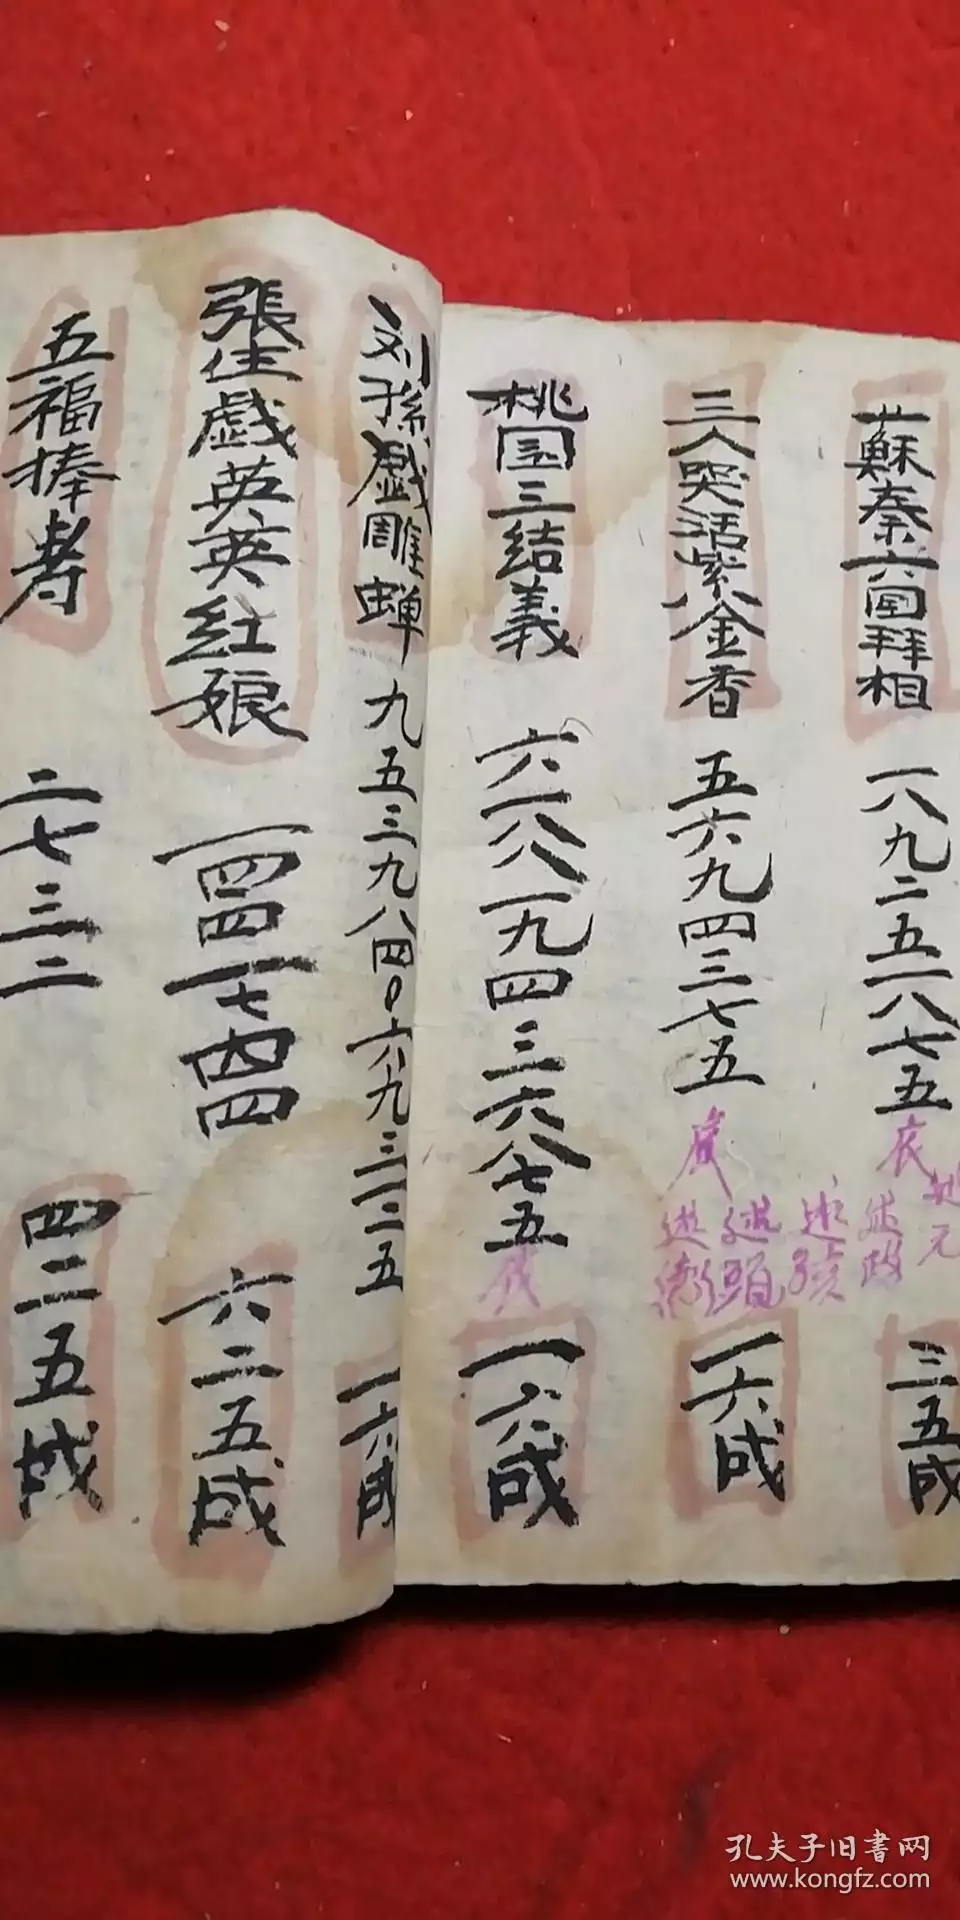 蘇秦六国拜相 一八九二五一八七五 三五成
三人哭活紫金香 五六九四三七五 一六成
桃园三结義 六一八八一九四三六八七五 一六成
刘孫戯雕蝉 九五三九八四〇六九三一二五 一六成
張生戯英英红娘 一四四一七四四 六二五成
五福捧寿 二七三二 四二五成
孔夫子旧书网
www.kongfz.com